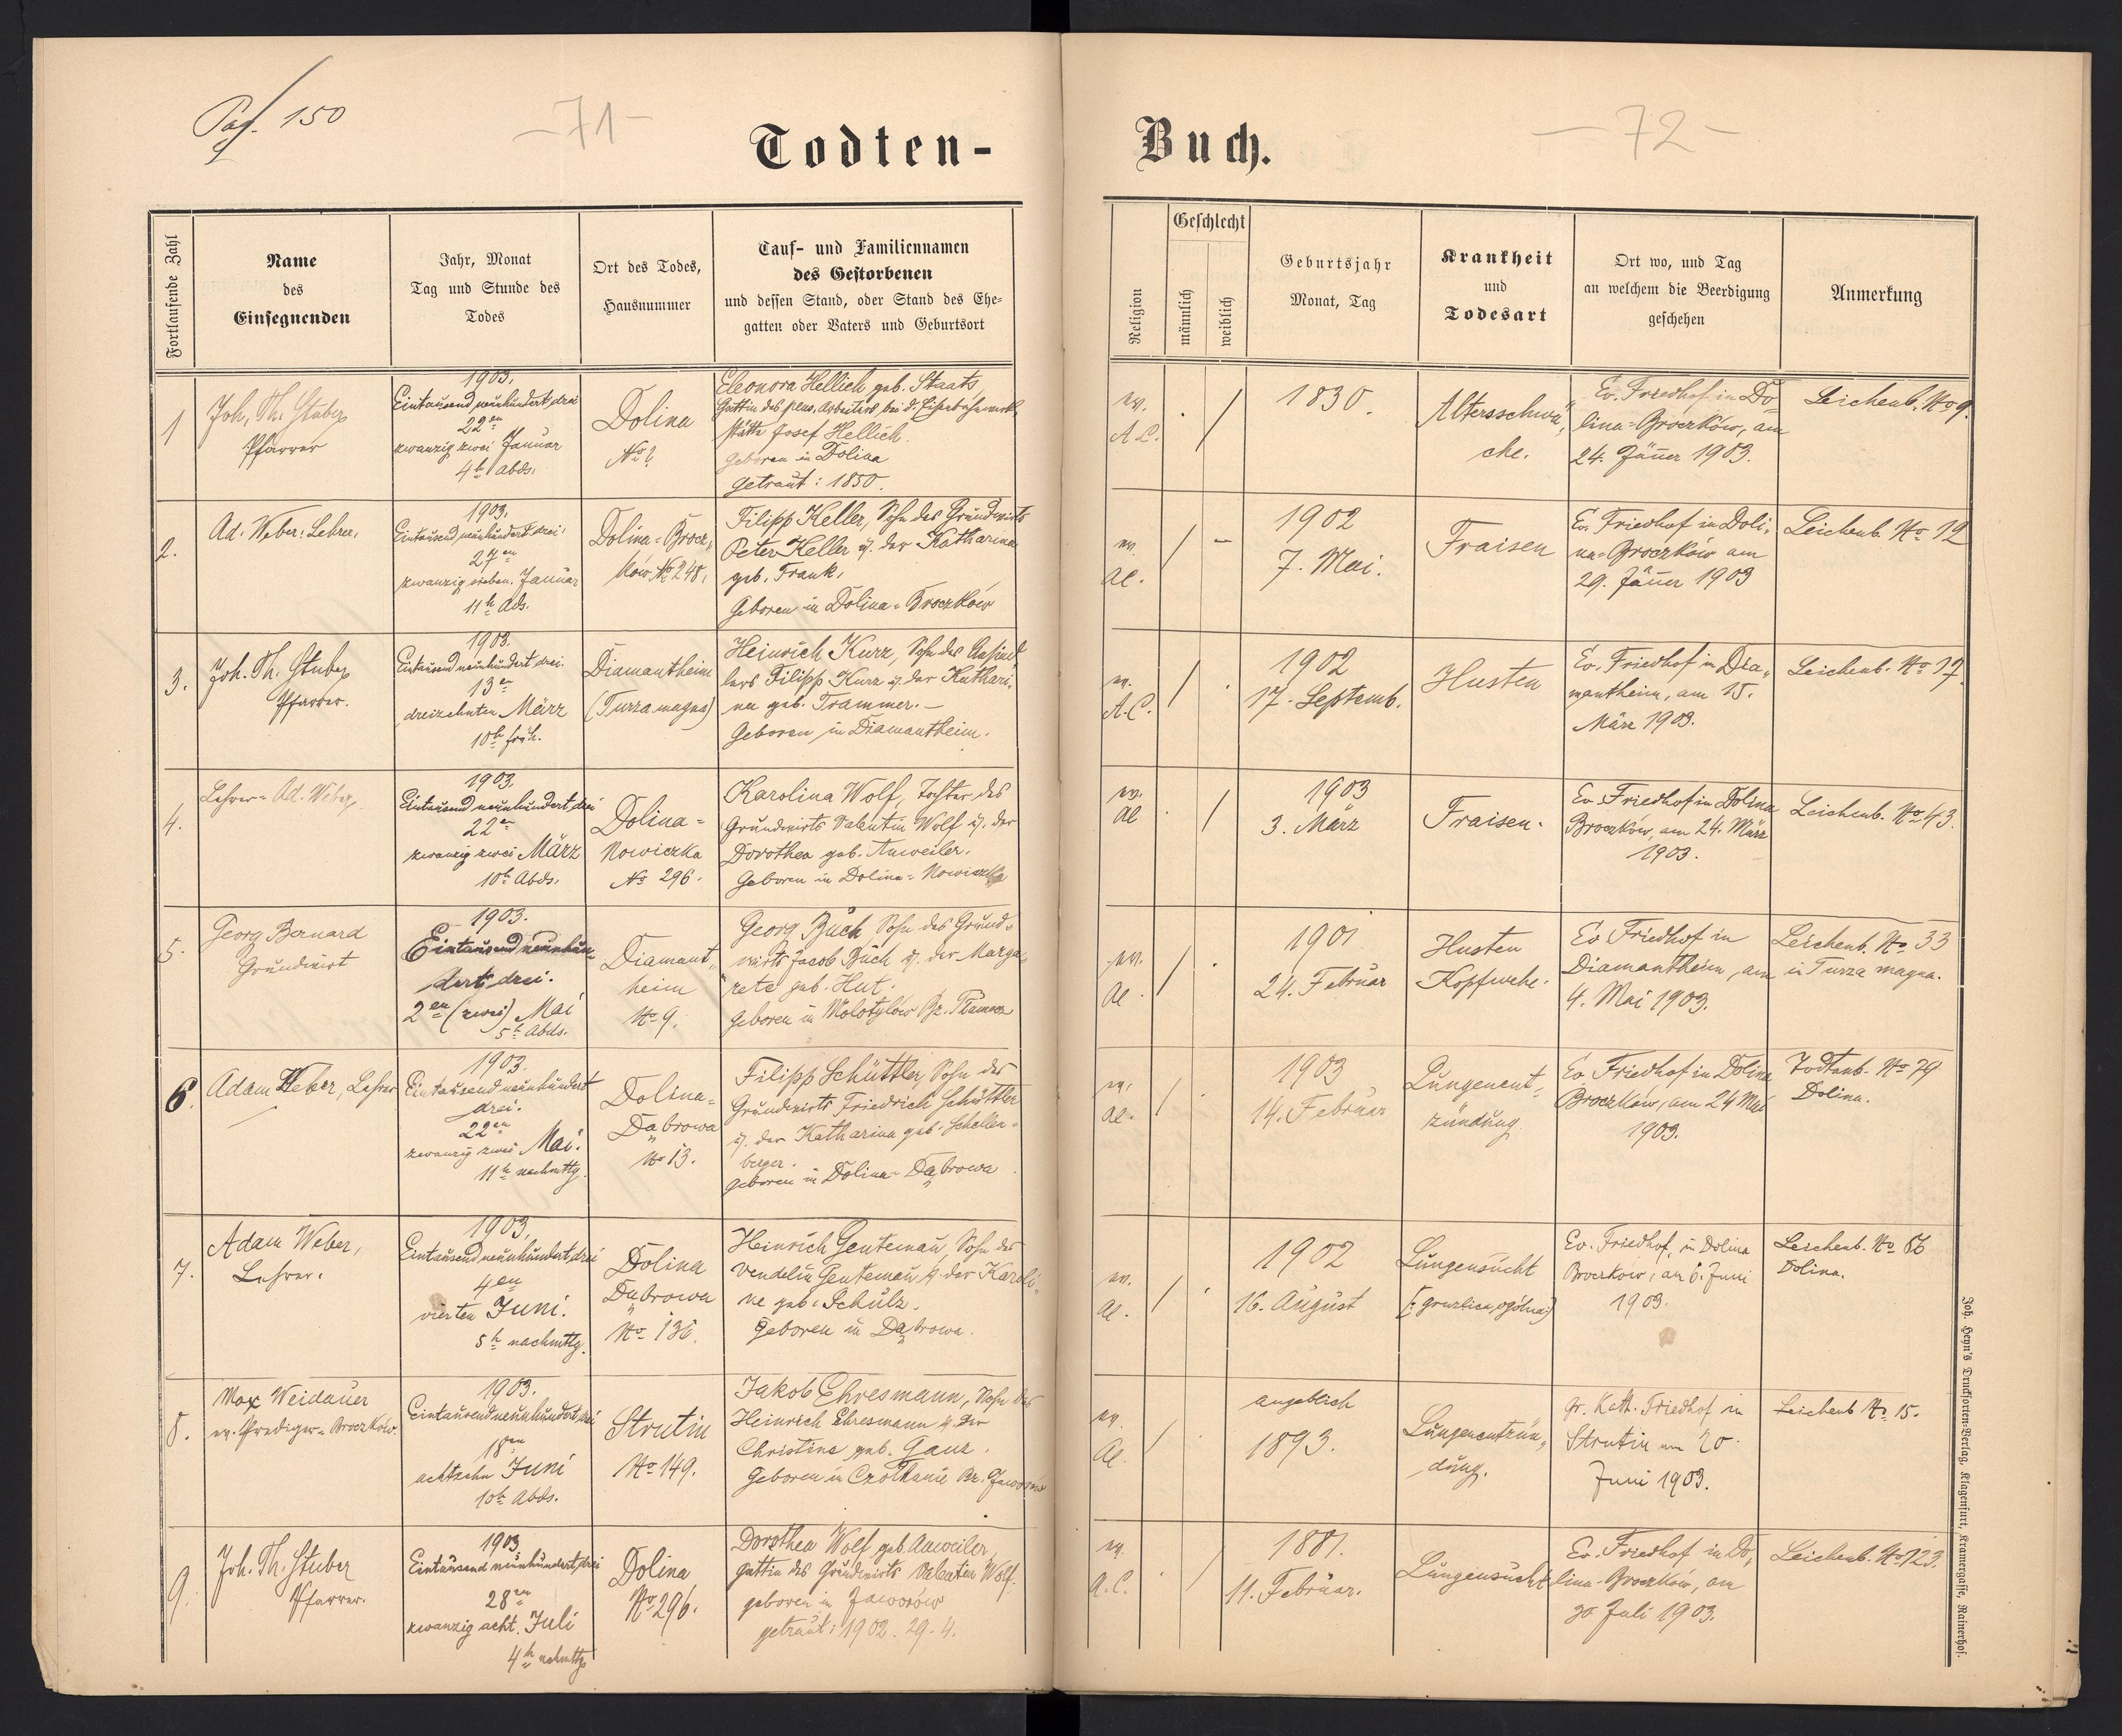 Pag. 150
—71—
—72—
Todten-Buch.
Fortlaufende Zahl
Name
des
Einsegnenden
Jahr, Monat
Tag und Stunde des
Todes
Ort des Todes,
Hausnummer
Tauf- und Familiennamen
des Gestorbenen
und dessen Stand, oder Stand des Ehe-
gatten oder Vaters und Geburtsort
Religion
Geschlecht
männlich
weiblich
Geburtsjahr
Monat, Tag
Krankheit
und
Todesart
Ort wo, und Tag
an welchem die Beerdigung
geschehen
Anmerkung
1
Joh. Th. Stuber
Pfarrer
1903.
Eintausend neunhundert drei
22en
zwanzig zwei Januar
4h Abds.
Dolina
No ?
Eleonora Hellich geb. Staats,
Gattin des pens. Arbeiters bei d. Eisenbahnwerk-
stätte Josef Hellich.
Geboren in Dolina
Getraut: 1850.
ev.
A.C.
. /
1830.
Altersschwä-
che.
Ev. Friedhof in Do-
lina-Broczków, am
24. Jäner 1903.
Leichenb. No 9.
2.
Ad. Weber, Lehrer.
1903.
Eintausend neunhundert drei.
27en
zwanzig sieben. Januar
11h Ads.
Dolina-Brocz-
ków No 248.
Filipp Keller, Sohn des Grundwirts
Peter Keller u. der Katharina
geb. Frank.
Geboren in Dolina-Broczków
ev.
AC.
/ –
1902
7. Mai.
Fraisen
Ev. Friedhof in Doli-
na-Broczków am
29. Jäner 1903
Leichenb. No 12
3.
Joh. Th. Stuber
Pfarrer.
1903.
Eintausend neunhundert drei.
13en
dreizehnten März
10h früh.
Diamantheim
(Turza magna)
Heinrich Kurz, Sohn des Ansied-
lers Filipp Kurz u. der Kathari-
na geb. Trammer. –
Geboren in Diamantheim.
ev.
A.C.
/ .
1902
17. Septemb.
Husten
Ev. Friedhof in Dia-
mantheim, am 15.
März 1903.
Leichenb. No 17.
4.
Lehrer-Ad. Weber.
1903.
Eintausend neunhundert drei
22en
zwanzig zwei März
10h Abds.
Dolina-
Nowiczka
No 296.
Karolina Wolf, Tochter des
Grundwirts Valentin Wolf u. der
Dorothea geb. Anweiler.
Geboren in Dolina-Nowiczka
ev.
AC
. /
1903
3. März
Fraisen.
Ev. Friedhof in Dolina
Broczków, am 24. März
1903.
Leichenb. No 43.
5.
Georg Bernard
Grundwirt
1903.
Eintausend neunhun-
dert drei.
2en (zwei) Mai
5h Abds.
Diamant-
heim
No 9.
Georg Buch Sohn des Grund-
wirts Jacob Buch u. der Marga-
rete geb. Hut.
Geboren in Molotylow
ev.
AC.
/ .
1901
24. Februar
Husten
Kopfwehe.
Ev Friedhof in
Diamantheim, am
4. Mai 1903.
Leichenb. No 33
in Turza magna.
6.
Adam Weber, Lehrer
1903.
Eintausend neunhundert
drei.
22en
zwanzig zwei Mai.
11h nachmttg.
Dolina-
Dąbrowa
No 13.
Filipp Schüttler, Sohn des
Grundwirts Friedrich Schüttler
u. der Katharina geb. Schellen-
berger.
geboren in Dolina-Dąbrowa
ev.
AC.
/ .
1903
14. Februar
Lungenent-
zündung
Ev Friedhof in Dolina
Broczków, am 24 Mai
1903.
Todtenb. No 79
Dolina.
7.
Adam Weber,
Lehrer.
1903.
Eintausend neunhundert drei
4en
vierten Juni.
5h nachmttg.
Dolina
Dąbrowa
No 136.
Heinrich Gentemau, Sohn des
Vendelin Gentemau u. der Karoli-
ne geb. Schulz.
Geboren in Dąbrowa.
ev.
AC.
/ .
1902
16. August
Lungensucht
[: gruzlica ogólna :]
Ev. Friedhof, in Dolina
Broczkow, am 6. Juni
1903.
Leichenb. No 86
Dolina.
8.
Max Weidauer
ev. Prediger-Broczków.
1903.
Eintausend neunhundert drei
18en
achtzehn Juni
10h Abds.
Strutin
No 149.
Jakob Ehresmann, Sohn des
Heinrich Ehresmann u. der
Christine geb. Ganz.
Geboren in Czolhanie
ev.
AC.
/ .
angeblich
1893.
Lungenentzün-
dung.
Gr. Kath. Friedhof in
Strutin am 20.
Juni 1903.
Leichenb No 15.
9.
Joh. Th. Stuber
Pfarrer.
1903
Eintausend neunhundert drei
28en
zwanzig acht. Juli
4h nachmttgs
Dolina
No 296.
Dorothea Wolf geb. Anweiler,
Gattin des Grundwirts Valentin Wolf.
geboren in Jaworów
getraut: 1902. 29. 4.
ev.
A.C.
. /
1881.
11. Februar.
Lungensucht
Ev. Friedhof in Do-
lina-Broczków, am
30 Juli 1903.
Leichenb. No 123.
Joh. Heyn's Drucksorten-Verlag, Klagenfurt, Kramergasse, Rainerhof.